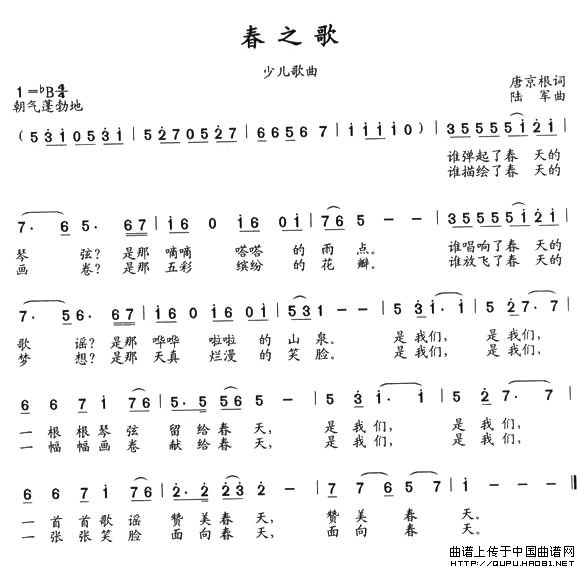 春之歌
少儿歌曲
1=♭B 4/4
唐京根词
朝气蓬勃地
陆 军 曲
(5 3 1 0 5 3 1 | 5 2 7 0 5 2 7 | 6 6 5 6 7 | 1 1 1 1 0) | 3 5 5 5 5 1 2 1 |
谁弹起了春 天的
谁描绘了春 天的
7· 6 5· 6 7 | 1 6 0 1 6 0 1 | 7 6 5 - - | 3 5 5 5 5 1 2 1 |
琴 弦? 是那 嘀嘀 嗒嗒 的 雨 点。 谁唱响了春 天的
画 卷? 是那 五彩 缤纷 的 花 瓣。 谁放飞了春 天的
7· 5 6· 6 7 | 1 6 0 1 6 0 1 | 5 3 1 - - | 5 3 1· 1 | 5 2 7· 7 |
歌 谣? 是那 哗哗 啦啦 的 山 泉。 是 我们, 是 我们,
梦 想? 是那 天真 烂漫 的 笑 脸。 是 我们, 是 我们,
6 6 7 1 7 6 | 5· 5 5 6 5 - | 5 3 1· 1 | 5 2 7· 7 |
一 根 根 琴 弦 留 给 春 天, 是 我 们, 是 我 们,
一 幅 幅 画 卷 献 给 春 天, 是 我 们, 是 我 们,
6 6 7 1 7 6 | 2· 2 2 3 2 - | 7 7 6 5 7 | 1 - - - ‖
一 首 首 歌 谣 赞 美 春 天, 赞 美 春 天。
一 张 张 笑 脸 面 向 春 天, 面 向 春 天。
曲谱上传于中国曲谱网
HTTP://QUPU.HAO81.NET